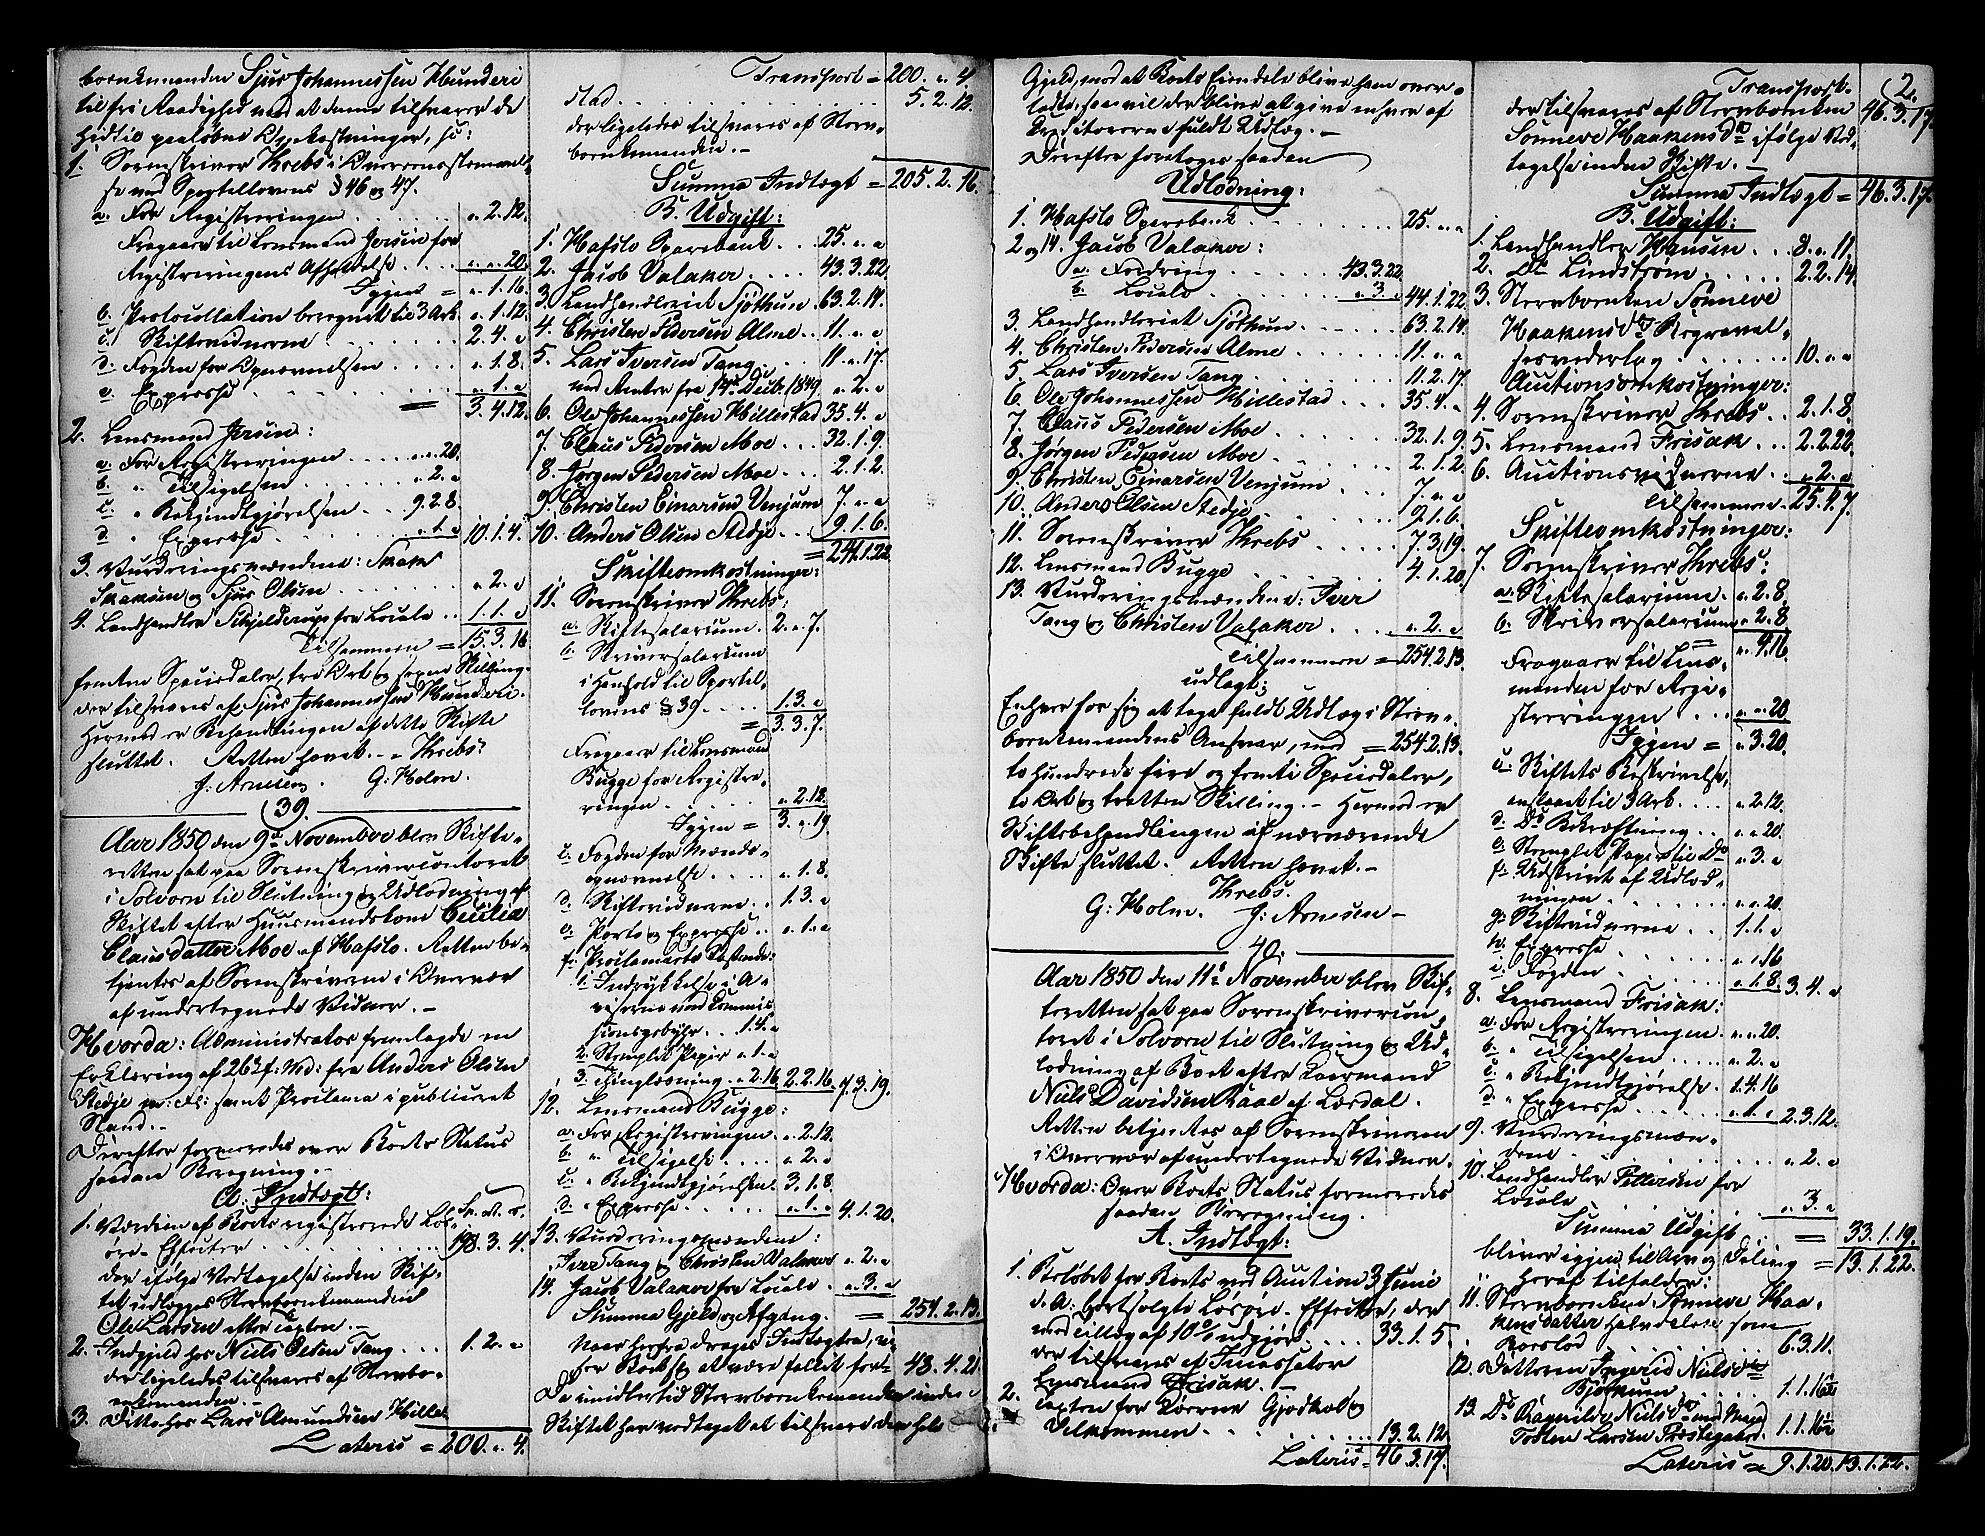 boenkemanden Sjur Johannessen Hunderi
til fri Raadighed mod at denne tilsvarer de
hidtil paaløbne Omkostninger, so:
1. Sorenskriver Krebs i Overensstemmel-
se med Sportellovens § 46 og 47.
a. For Registreringen . . . . " 2. 12.
Fragaaer til Lensmand Jersin for
Registreringens Afholdelse . . . . " " 20.
Igjen = " 1. 16.
b. Protocollation beregnet til 3 Ark " 1. 12.
c. Skiftevidnerne . . . . 2. 4. "
d. Fogden for Opnævnelsen . . . . " 1. 8.
e. Expresse . . . . " 1. "
= 3. 4. 12.
2. Lensmand Jersin:
a. For Registreringen . . . . " " 20.
b. " Tilsigelsen . . . . " 2. "
c. " Bekjendtgjørelsen . . 9. 2. 8.
d. " Expresse . . . . " 1. " 10. 1. 4.
3. Vurderingsmændene:
og Sjur Olsen . . . . " 2. "
4. Landhandler Schjelderup for Locale . . 1. 1. "
Tilsammen = 15. 3. 16
femten Speciedaler, tre Ort og sexten Skilling
der tilsvares af Sjur Johannessen Hunderi.
Hermed er Behandlingen af dette Skifte
sluttet. Retten hævet. - Krebs.
J. Arnesen G: Holm.
39.
Aar 1850 den 9de November blev Skifte-
retten sat paa Sorenskrivercontoret
i Solvorn til Slutning og Udlodning af
Skiftet efter Huusmandskone Cecilia
Clausdatter Moe af Hafslo. Retten be-
tjentes af Sorenskriveren i Overvær
af undertegnede Vidner. -
Hvorda: Administrator fremlagde en
Erklæring af 26de f: Md: fra Anders Olsen
Stedje m. Fl: samt Proclama i publiceret
Stand. -
Derefter formeredes over Boets Status
saadan Beregning. -
A: Indtægt: Sp. O. s.
1. Værdien af Boets registrerede Løs-
øre-Effecter . . . . 198. 3. 4.
der ifølge Vedtagelse inden Skif-
tet udlægges Stervboenkemanden
Ole Larsen efter Taxten. -
2. Indgjeld hos Niels Olsen Tang . . . 1. 2. "
der ligeledes tilsvares af Stervbo-
enkemanden. -
3. Ditto hos Lars Amundsen Hille-
Lateris = 200. " 4.
Transport = 200. " 4.
stad . . . . 5. 2. 12.
der ligeledes tilsvares af Sterv-
boenkemanden. -
Summa Indtægt = 205. 2. 16.
B. Udgift:
1. Hafslo Sparebank . . . 25. " "
2. Jacob Valaker . . . . 43. 3. 22.
3. Landhandleriet Sjøthun . 63. 2. 14.
4. Christen Pedersen Alme . . 11. " "
5. Lars Iversen Tang . . . 11. " 17.
med Renter fra 14de Decbr. 1849 " 2. "
6. Ole Johannessen Hillestad 35. 4. "
7. Claus Pedersen Moe . . . 32. 1. 9.
8. Jørgen Pedersen Moe . . . 2. 1. 2.
9. Christen Einarsen Venjum 7. " "
10. Anders Olsen Stedje . . . 9. 1. 6.
= 241. 1. 22.
Skifteomkostninger:
11. Sorenskriver Krebs:
a. Skiftesalarium. 2. " 7.
b. Skriversalarium
i Henhold til Sportel-
lovens § 39 . . . . 1. 3. "
= 3. 3. 7.
Fragaaer til Lensmand
Bugge for Registre-
ringen . . . . " 2. 12.
Igjen = 3. " 19.
c. Fogden for Mænds-
opnævnelse . . . . " 1. 8.
d. Skiftevidnerne . . 1. 3. "
e. Porto og Expresse . . " 1. "
f. Proclamats Kostende:
1. Indrykkelse i A-
viserne med Commis-
sionsgebyhr . . 1. 4. "
2. Stemplet Papir " 1. "
3. Thinglæsning . " 2. 16. 2. 2. 16. 7. 3. 19.
12. Lensmand Bugge:
a. For Registreringen . " 2. 12.
b. " Tilsigelse . . . . " 2. "
c. " Bekjendtgjørelsen . 3. 1. 8.
d. " Expresse . . . . " 1. " 4. 1. 20.
13. Vurderingsmændene:
Iver Tang og Christen Valaker " 2. "
14. Jacob Valaker for Locale . " 3. "
Summa Gjeld og Afgang. = 254. 2. 13.
Naar herfra drages Indtægten, vi-
ser Boet sig at være fallit for = 48. 4. 21
Da imidlertid Stervboenkemanden inden
Skiftet har vedtaget at tilsvare den hele
Gjeld, mod at Boets Eiendele bliver ham over-
ladte, saa vil der blive at give enhver af
Creditorerne fuldt Udlæg. -
Derefter foretoges saadan
Udlodning:
1. Hafslo Sparebank . . . . 25. " "
2 og 14. Jacob Valaker:
a. Fordring . . . . 43. 3. 22.
b. Locale . . . . " 3. " 44. 1. 22.
3. Landhandleriet Sjøthun . . . . 63. 2. 14.
4. Christen Pedersen Alme . . . . 11. " "
5. Lars Iversen Tang . . . . 11. 2. 17.
6. Ole Johannessen Hillestad . . . 35. 4. "
7. Claus Pedersen Moe . . . . 32. 1. 9.
8. Jørgen Pedersen Moe . . . . 2. 1. 2.
9. Christen Einarsen Venjum . . . 7. " "
10. Anders Olsen Stedje . . . . 9. 1. 6.
11. Sorenskriver Krebs . . . . 7. 3. 19.
12. Lensmand Bugge . . . . 4. 1. 20.
13. Vurderingsmændene: Iver
Tang og Christen Valaker . . . " 2. "
Tilsammen = 254. 2. 13.
udlagt:
Enhver for sig at tage fuldt Udlæg i Sterv-
boenkemandens Ansvar, med = 254. 2. 13.
to hundrede fire og femti Speciedaler,
to Ort og tretten Skilling. - Hermed er
Skiftebehandlingen af nærværende
Skifte sluttet. Retten hævet. -
Krebs.
G: Holm. J. Arnesen -
40.
Aar 1850 den 11te November blev Skif-
teretten sat paa Sorenskrivercon-
toret i Solvorn til Slutning og Ud-
lodning af Boet efter Laarmand
Niels Davidsen Raae af Lærdal.
Retten betjentes af Sorenskriveren
i Overvær af undertegnede Vidner.
Hvorda: Over Boets Status formeredes
saadan Beregning.
A. Indtægt:
1. Beløbet for Boets ved Auction 3 Juni
d. A: bortsolgte Løsøre-Effecter, der
med Tillæg af 10% udgjør . . . . 33. 1. 5
der tilsvares af Incassator
Lensmand Frisak. -
2. Taxten for
. . . . 13. 2. 12.
Lateris = 46. 3. 17.
2.
Transport.
der tilsvares af Stervboenken 46. 3. 17.
Sønneve Haakensdr ifølge Ved-
tagelse inden Skifte. -
Summa Indtægt = 46. 3. 17.
B. Udgift:
1. Landhandler Hansen . . . 8. " 11.
2. Do Lindstrøm . . . . 2. 2. 14.
3. Stervboenken Sønneve
Haakensdr Begravel-
sesvederlag . . . . 10. " "
Auctionsomkostninger:
4. Sorenskriver Krebs . . 2. 1. 8.
5. Lensmand Frisak . . . 2. 2. 22.
6. Auctionsvidnerne . . " 2. "
Tilsammen = 25. 4. 7.
Skifteomkostninger:
7. Sorenskriver Krebs:
a. Skiftesalarium . " 2. 8
b. Skriversalarium " 2. 8
= " 4. 16.
Fragaaer til Lens-
manden for Regi-
streringen . . . " " 20
Igjen = " 3. 20.
c. Skiftets Beskrivelse,
anslaaet til 3 Ark . . . " 2. 12.
d. Ds Bekræftning . . " " 20.
e. Stemplet Papir til Do " 3. "
f. Udskrivt af Udlod-
ningen . . . . " " 20.
g. Skiftevidnerne . . 1. 1. "
h. Expresse . . . . " 1. 16
i. Fogden . . . . " 1. 8. 3. 4. "
8. Lensmand Frisak:
a. For Registreringen . " " 20.
b. " Tilsigelsen . . . . " 2. "
c. " Bekjendtgjørelse . 1. 4. 16
d. " Expresse . . . . " 1. " 2. 3. 12.
9. Vurderingsmæn-
dene . . . . " 2. "
10. Landhandler Pettersen for
Locale . . . . " 3. "
Summa Udgift = 33. 1. 19.
bliver igjen til Arv og Deling = 13. 1. 22.
hvoraf tilfalder:
11. Stervboenken Sønneve Haa-
kensdatter Halvdelen som
Boeslod . . . . 6. 3. 11.
12. Datteren Ingerid Nielsdr
. . . . 1. 1. 16
13. Ds Ragnilde Nielsdr med Mand
Torsten Larsen Præstegaard 1. 1. 16
Lateris = 9. 1. 20. 13. 1. 22.